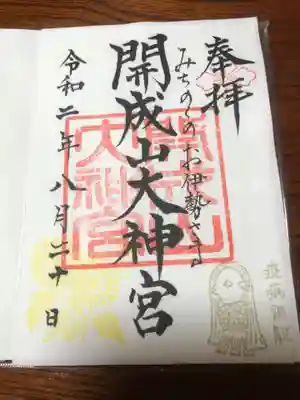 奉拝
みちのくのお伊勢さま
開成山大神宮
令和二年八月二十日
開成山大神宮
疫病退散